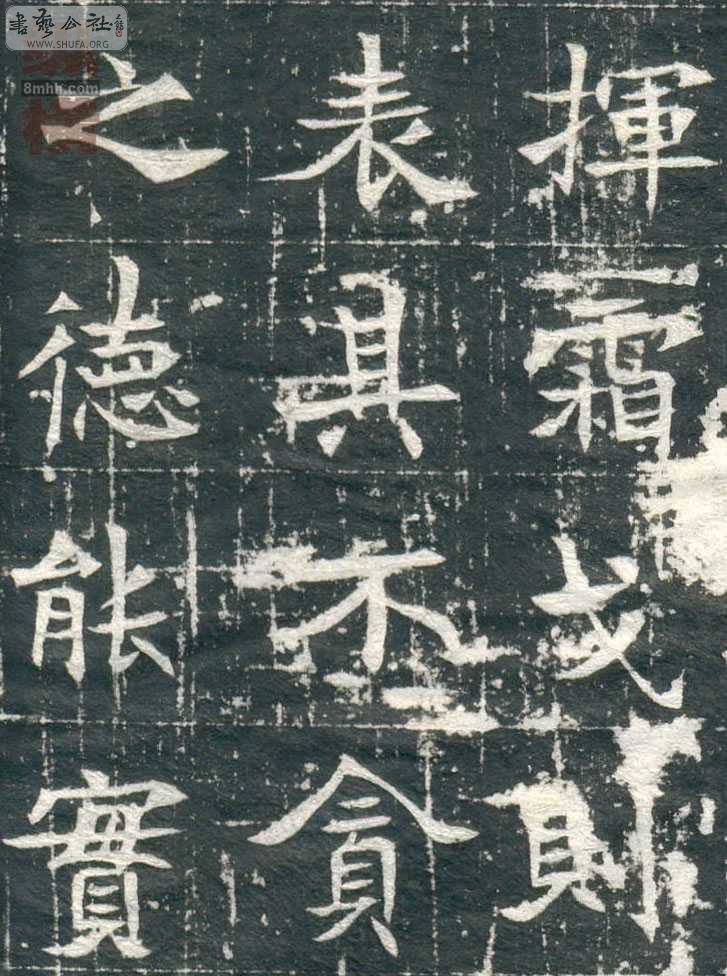 書藝公社
WWW.SHUFA.ORG
8mhh.com
揮霜戈則
表其不貪
之德能實